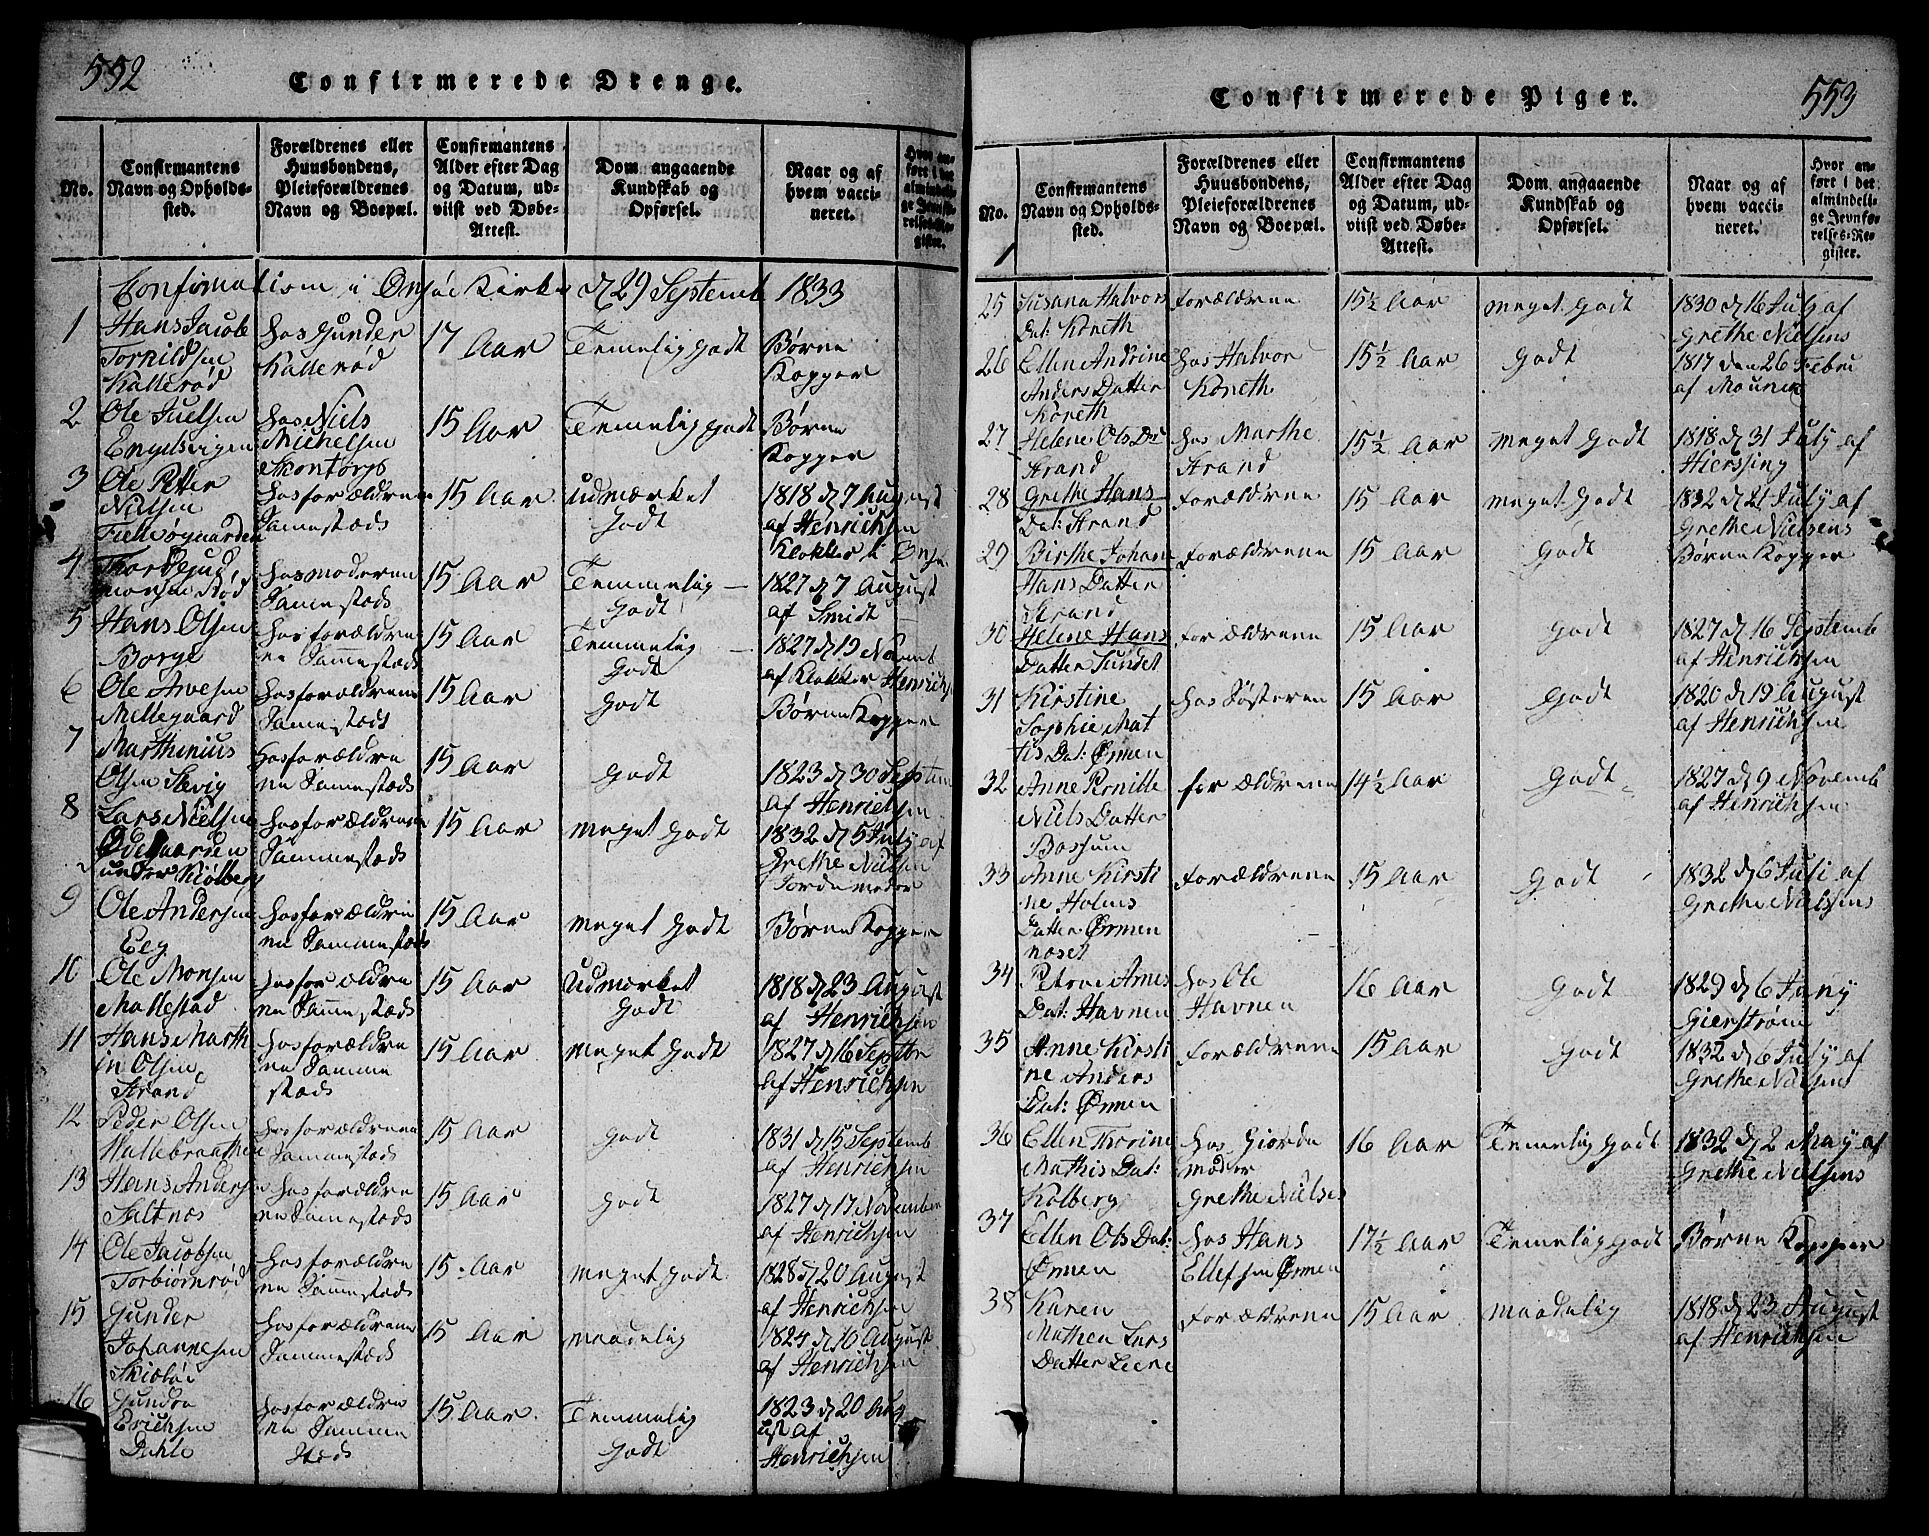 552
Confirmerede Drenge.
No.
Confirmantens
Navn og Opholds-
sted.
Forældrenes eller
Huusbondens,
Pleieforældrenes
Navn og Boepæl.
Confirmantens
Alder efter Dag
og Datum, ud-
viist ved Døbe-
Attest.
Dom angaaende
Kundskab og
Opførsel.
Naar og af
hvem vacci-
neret.
Hvor an-
ført i det
almindeli-
ge Jevnfø-
relses-Re-
gister.
Confirmation i Onsøe Kirke d 29 Septemb 1833
1
Hans Jacob
Torkildsen
Kallerød
hos Gunder
Kallerød
17 Aar
Temelig godt
Børne
Kopper
2
Ole Juelsen
Engelsvigen
hos Niels
Michelsen
15 Aar
Temmelig godt
Børne
Kopper
3
Ole Petter
Nielsen
hos forældrene
Sammestæds
15 Aar
Udmærket
Godt
1818 d 7 August
af Henrichsen
Klokker i Onsø
4
hos moderen
Sammestæds
15 Aar
Temmelig
Godt
1827 d 7 August
af Smidt
5
Hans Olsen
Borge
hos forældre
ne Sammestæds
15 Aar
Temmelig
Godt
1827 d 19 Novemt
af Klokker Henrichs
6
Ole Arvesen
Mellegaard
hos forældrene
Sammestæds
15 Aar
Godt
Børne Kopper
7
Marthinius
Olsen Slevig
hos forældre
ne Sammestæds
15 Aar
Godt
1823 d 30 Septem
af Henrichsen
8
Lars Nielsen
Ødegaarden
under Kiølberg
hos forældrene
Sammestæds
15 Aar
meget Godt
1832 d 5 July af
Grethe Nielsen
Jordemoder
9
Ole Andersen
Eeg
hos forældre
ne Sammestæds
15 Aar
meget Godt
Børne Kopper
10
Ole Monsen
Mallestad
hos forældre
ne Sammestæds
15 Aar
Udmærket
Godt
1818 d 23 August
af Henrichsen
11
Hans Marth
in Olsen
Strand
hos forældre
ne Samme
stæds
15 Aar
meget Godt
1827 d 16 Septbr
af Henrichsen
12
Peder Olsen
hos forældrene
Sammestæds
15 Aar
Godt
1831 d 15 Septemb
af Henrichsen
13
Hans Andersen
Saltnæs
hos forældre
ne Sammestæds
15 Aar
Godt
1827 d 17 November
af Henrichsen
14
Ole Jacobsen
Torbiørnrød
hos forældre
ne Sammestæds
15 Aar
meget Godt
1828 d 20 August
af Henrichsen
15
Gunder
Johannesen
Skiebøe
hos forældrene
Sammestæds
15 Aar
maadelig
1824 d 16 August
af Henrichsen
16
Erichsen
Dahle
hos forældre
ne Samme
stæds
15 Aar
Temmelig
Godt
1823 d 20 Aug
ust af
Henrichsen
553
Confirmerede Piger.
No.
1
Confirmantens
Navn og Opholds-
sted.
Forældrenes eller
Huusbondens,
Pleieforældrenes
Navn og Boepæl.
Confirmantens
Alder efter Dag
og Datum, ud-
viist ved Døbe-
Attest.
Dom angaaende
Kundskab og
Opførsel.
Naar og af
hvem vacci-
neret.
Hvor an-
ført i det
almindeli-
ge Jevnfø-
relses-Re-
gister.
25
Susana Halvors
Dat: Koneth
forældrene
15½ Aar
meget godt
1830 d 16 July af
Grethe Nielsens
26
Ellen Andrine
Anders Datter
Koneth
hos Halvor
Koneth
15½ Aar
Godt
1817 den 26 Febru
af
27
Helene Ols Da
Strand
hos Marthe
Strand
15½ Aar
meget Godt
1818 d 31 July af
Hierssing
28
Grethe Hans
Dat: Strand
forældrene
15 Aar
meget Godt
1832 d 21 July af
Grethe Nielsens
29
Birthe Johan
Hans Datter
Strand
forældrene
15 Aar
Godt
Børne Kopper
30
Helene Hans
Datter Sundet
forældrene
15 Aar
Godt
1827 d 16 Septemb
af Henrichsen
31
Kirstine
Sophie Mat
tis Dat: Ørmen
hos Søsteren
15 Aar
Godt
1820 d 19 August
af Henrichsen
32
Anne Pernille
Niels Datter
Bossum
forældrene
14½ Aar
Godt
1827 d 9 Novemb
af Henrichsen
33
Anne Kirsti
ne Holms
Datter Ørmen
næset
forældrene
15 Aar
Godt
1832 d 6 Juli af
Grethe Nielsens
34
Petrae Arnes
Dat: Havnen
hos Ole
Havnen
16 Aar
Godt
1829 d 6 Juny
Gierstrøm
35
Anne Kirsti
ne Anders
Dat: Ørmen
forældrene
15 Aar
Godt
1832 d 6 July af
Grethe Nielsens
36
Ellen Thrine
Mathis Dat:
Kolberg
hos Giorde
moder
Grethe Nielses
16 Aar
Temelig godt
1832 d 2 May af
Grethe Nielsens
37
Ellen Ols Dat:
Ørmen
hos Hans
Ellefsen Ørmen
17½ Aar
Temelig godt
Børne Kopper
38
Karen
Mathea Lars
Datter Leere
forældrene
15 Aar
maadelig
1818 d 23 August
af Henrichsen